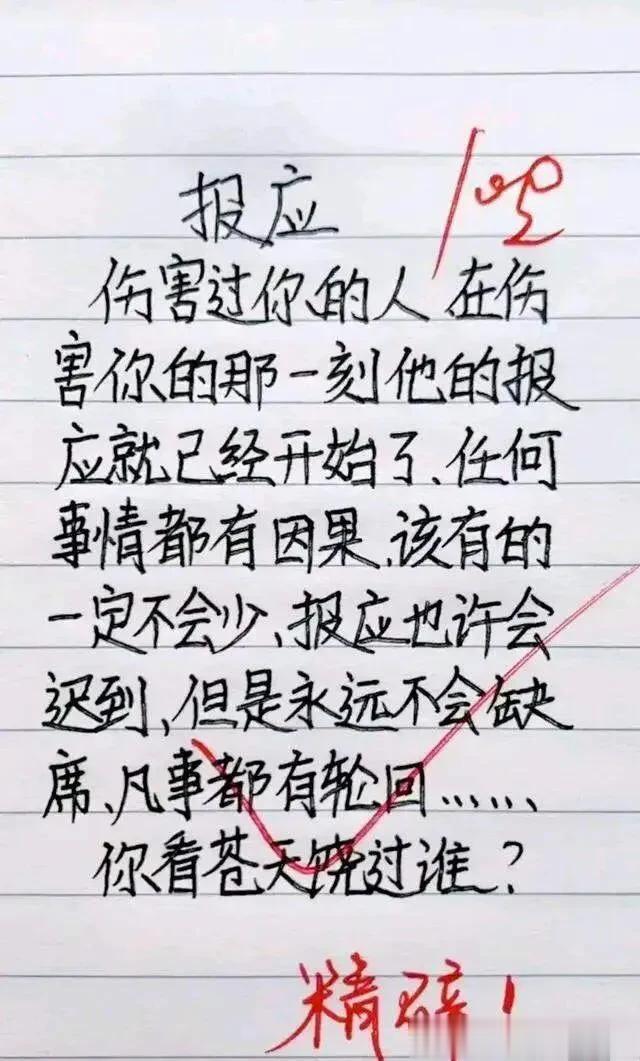 报应
100
伤害过你的人在伤
害你的那一刻他的报
应就已经开始了、任何
事情都有因果、该有的
一定不会少、报应也许会
迟到、但是永远不会缺
席、凡事都有轮回……
你看苍天饶过谁？
精辟！